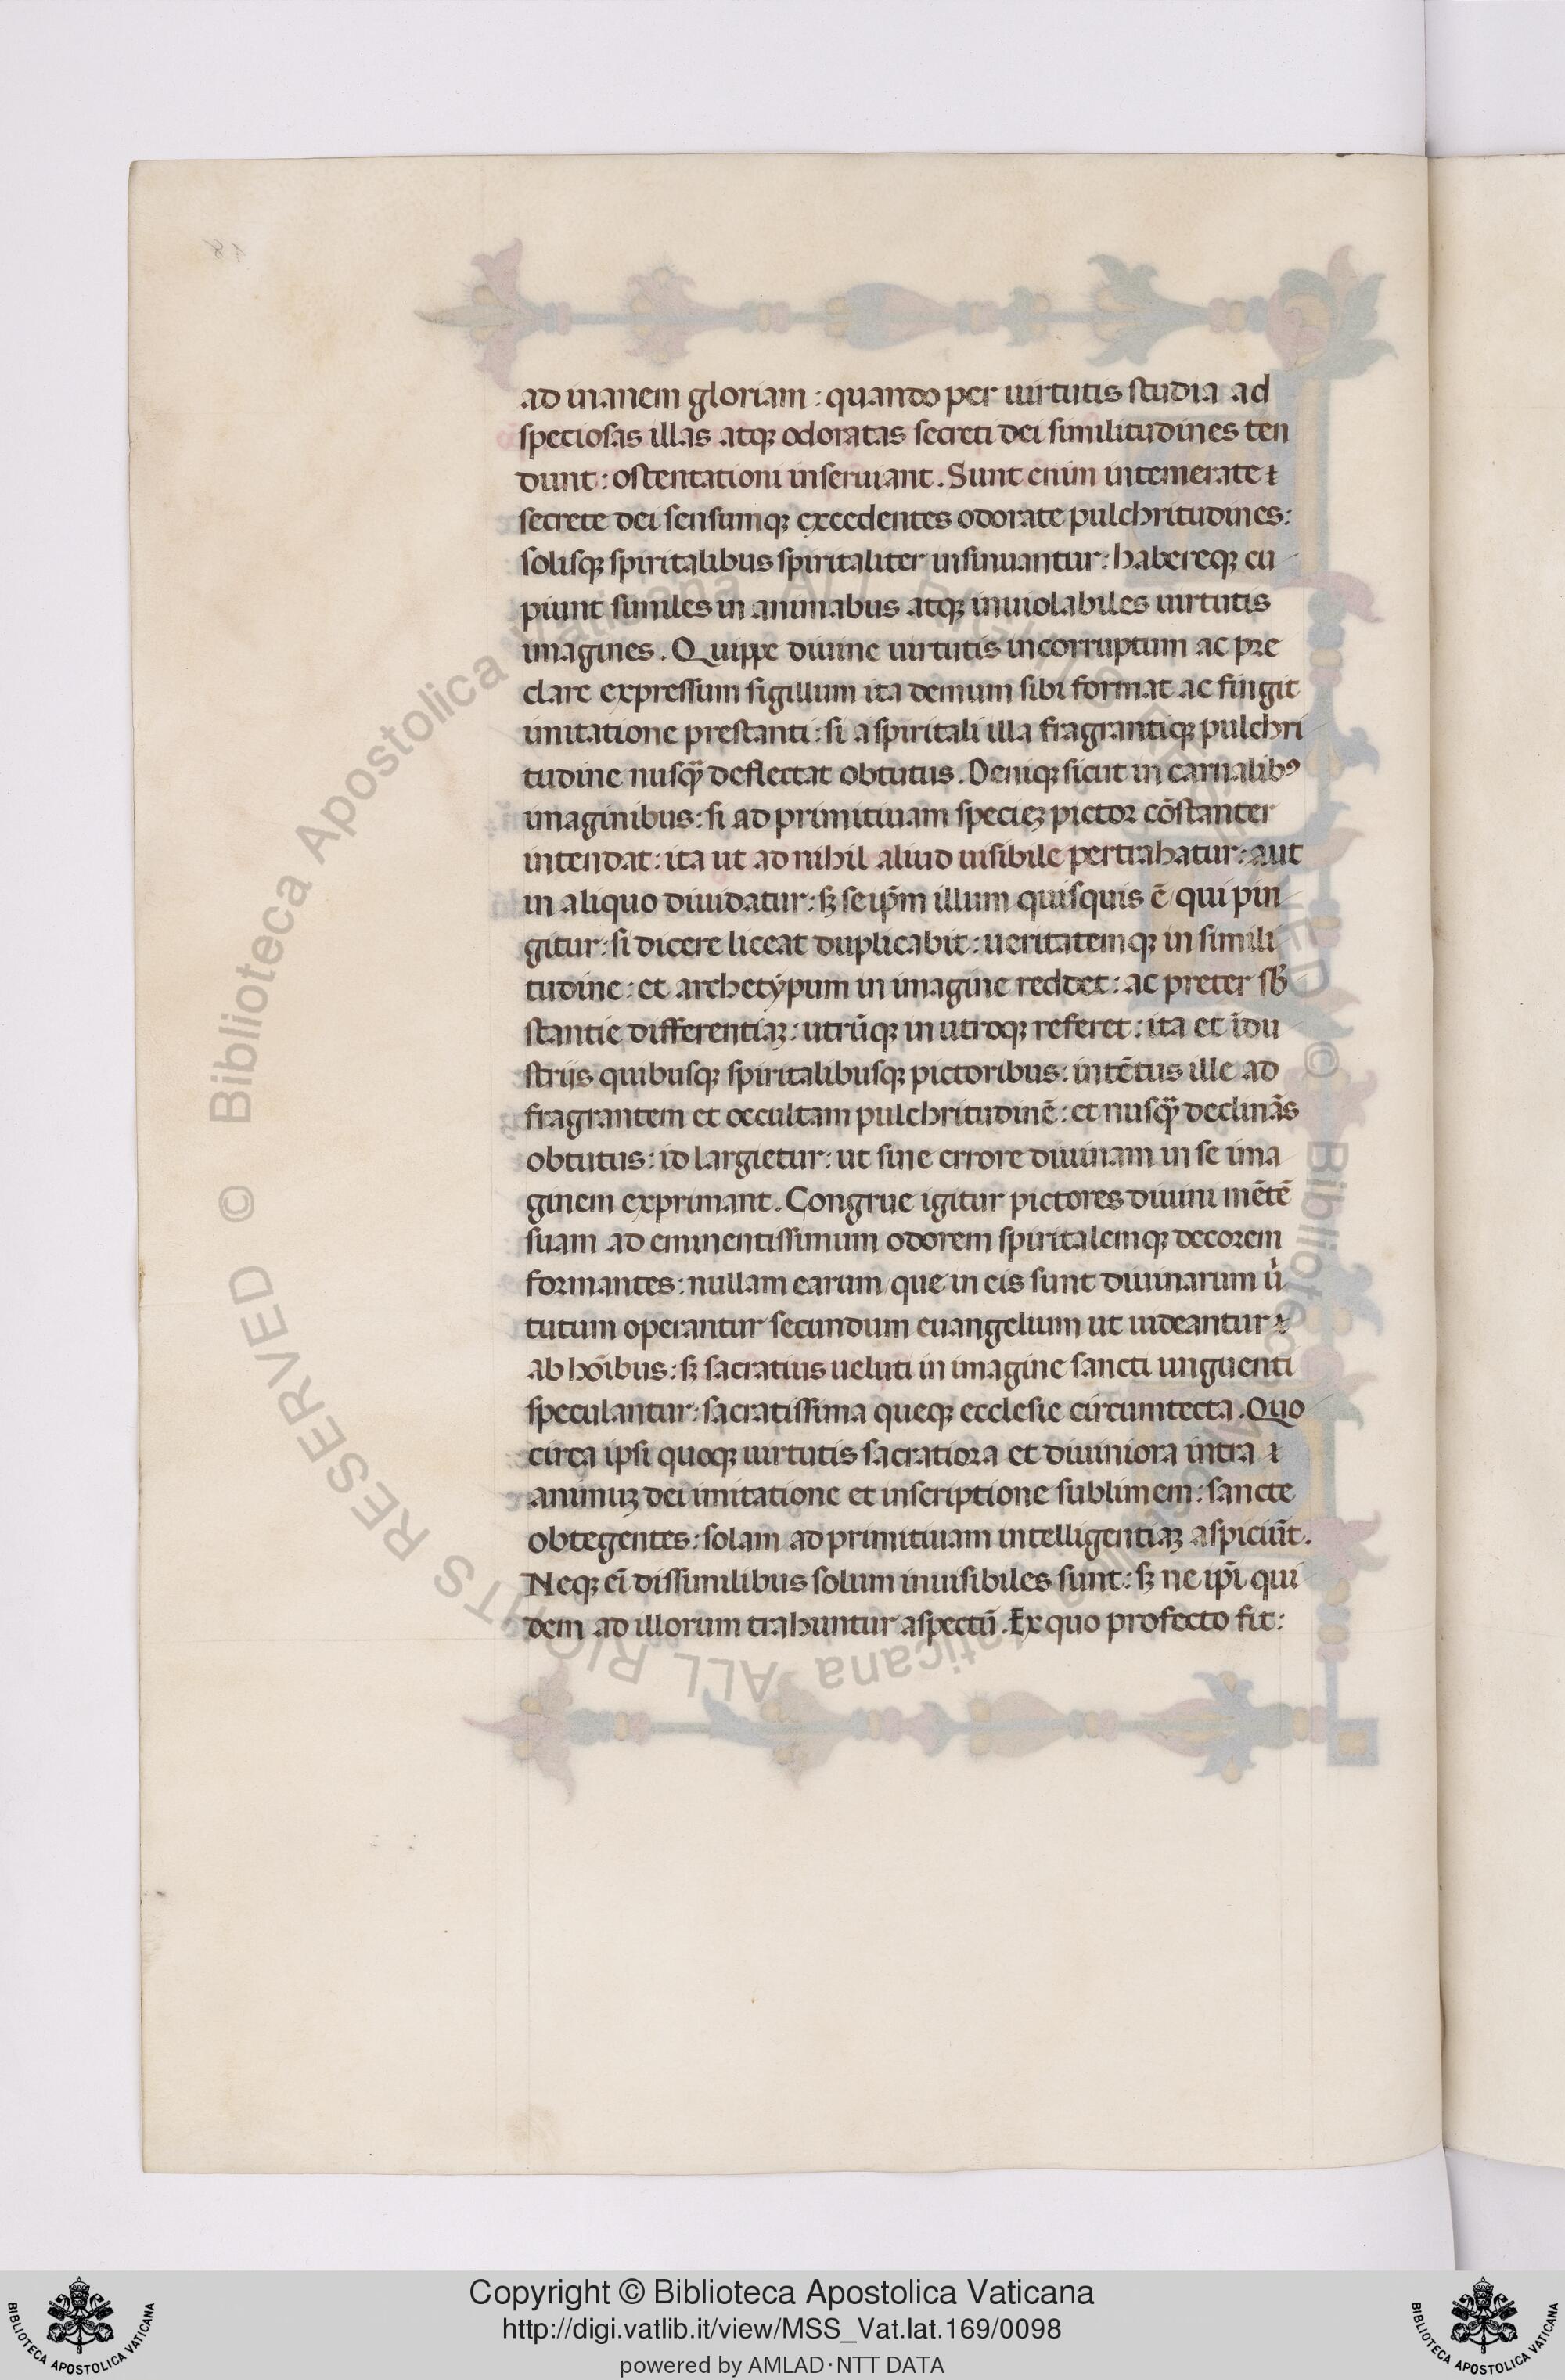 ad inanem gloriam : quando per uirtutis studia ad
speciosas illas atqꝫ odoratas secreti dei similitudines ten
dunt : ostentationi inseruiant . Sunt enim intemerate ⁊
secrete dei sensumqꝫ excedentes odorate pulchritudines :
solisqꝫ spiritalibus spiritaliter insinuantur : habereqꝫ cu
piunt similes in animabus atqꝫ inuiolabiles uirtutis
imagines . Quippe diuine uirtutis incorruptum ac pre
clare expressum sigillum ita demum sibi format ac fingit
imitatione prestanti : si a spiritali illa fragrantiqꝫ pulchri
tudine nusq̃ deflectat obtutus . Deniqꝫ sicut in carnalibꝰ
imaginibus : si ad primitiuam specieꝫ pictor cōstanter
intendat : ita ut ad nihil aliud uisibile pertrahatur : aut
in aliquo diuidatur : sꝫ seip̄m illum quisquis ē qui pin
gitur : si dicere liceat duplicabit : ueritatemqꝫ in simili
tudine : et archetẏpum in imagine reddet : ac preter sb̄
stantie differentiaꝫ : utrūqꝫ in utroqꝫ referet : ita et īdu
strijs quibusqꝫ spiritalibusqꝫ pictoribus : intētus ille ad
fragrantem et occultam pulchritudinē : et nusq̃ declinās
obtutus : id largietur : ut sine errore diuinam in se ima
ginem exprimant . Congrue igitur pictores diuini mētē
suam ad eminentissimum odorem spiritalemqꝫ decorem
formantes : nullam earum que in eis sunt diuinarum uͥ
tutum operantur secundum euangelium ut uideantur ⁊
ab hōibus : sꝫ sacratius ueluti in imagine sancti unguenti
speculantur : sacratissima queqꝫ ecclesie circumtecta . Quo
circa ipsi quoqꝫ uirtutis sacratiora et diuiniora intra ⁊
animuꝫ dei imitatione et inscriptione sublimem : sancte
obtegentes : solam ad primitiuam intelligentiaꝫ aspiciūt .
Neqꝫ eī dissimilibus solum inuisibiles sunt : sꝫ ne ip̄i qui
dem ad illorum trahuntur aspectū . Ex quo profecto fit :
© Biblioteca Apostolica Vaticana ALL RIGHTS RESERVED
Copyright © Biblioteca Apostolica Vaticana
http://digi.vatlib.it/view/MSS_Vat.lat.169/0098
powered by AMLAD·NTT DATA
BIBLIOTECA APOSTOLICA VATICANA
BIBLIOTECA APOSTOLICA VATICANA